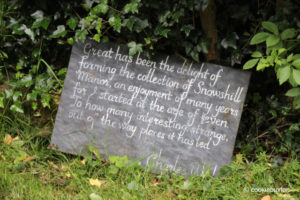 Great has been the delight of
forming the collection of Snowshill
Manor, an enjoyment of many years
for I started at the age of seven.
To how many interesting, strange,
out of the way places it has led